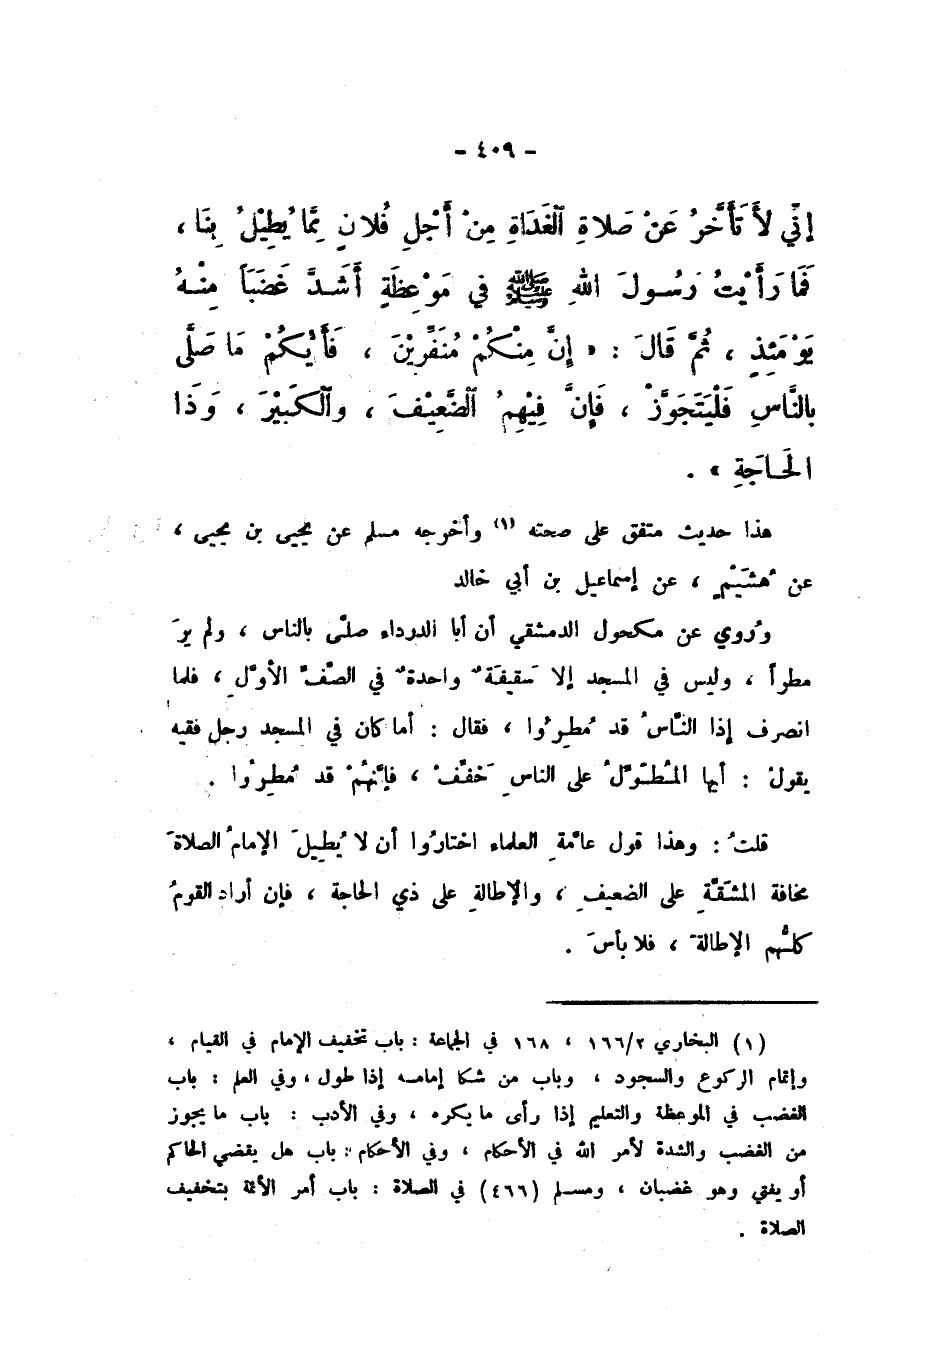 - ٤٠٩ -
إِنِّي لأَتَأَخَّرُ عَنْ صَلاةِ الْغَدَاةِ مِنْ أَجْلِ فُلانٍ مِمَّا يُطِيْلُ بِنَا ،
فَمَا رَأَيْتُ رَسُولَ اللهِ ﷺ فِي مَوْعِظَةٍ أَشَدَّ غَضَبَاً مِنْهُ
يَوْمَئِذٍ ، ثُمَّ قَالَ : « إِنَّ مِنْكُمْ مُنَفِّرِيْنَ ، فَأَيُّكُمْ مَا صَلَّى
بِالنَّاسِ فَلْيَتَجَوَّزْ ، فَإِنَّ فِيْهِمُ الضَّعِيْفَ ، والْكَبِيْرَ ، وَذَا
الْحَاجَةِ » .
هذا حديث متفق على صحته (١) وأخرجه مسلم عن يحيى بن يحيى ،
عن هُشَيْمٍ ، عن إسماعيل بن أبي خالد
ورُوي عن مكحول الدمشقي أن أبا الدرداء صلّى بالناس ، ولم يرَ
مطراً ، وليس في المسجد إلا سَقيفَةٌ واحدةٌ في الصّفِّ الأوّلِ ، فلما
انصرف إذا النّاسُ قد مُطِرُوا ، فقال : أما كان في المسجد رجل فقيه
يقولُ : أيها المُطَوّلُ على الناسِ خَفّفْ ، فإنّهُمْ قد مُطِرُوا .
قلتُ : وهذا قول عامّةِ العلماء اختارُوا أن لا يُطِيلَ الإمامُ الصلاةَ
مخافة المشَقّةِ على الضعيفِ ، والإطالةِ على ذي الحاجة ، فإن أراد القومُ
كلُّهم الإطالةَ ، فلا بأسَ .
(١) البخاري ١٦٦/٢ ، ١٦٨ في الجماعة : باب تخفيف الإمام في القيام ،
وإتمام الركوع والسجود ، وباب من شكا إمامه إذا طول ، وفي العلم : باب
الغضب في الموعظة والتعليم إذا رأى ما يكره ، وفي الأدب : باب ما يجوز
من الغضب والشدة لأمر الله في الأحكام ، وفي الأحكام : باب هل يقضي الحاكم
أو يفتي وهو غضبان ، ومسلم (٤٦٦) في الصلاة : باب أمر الأئمة بتخفيف
الصلاة .